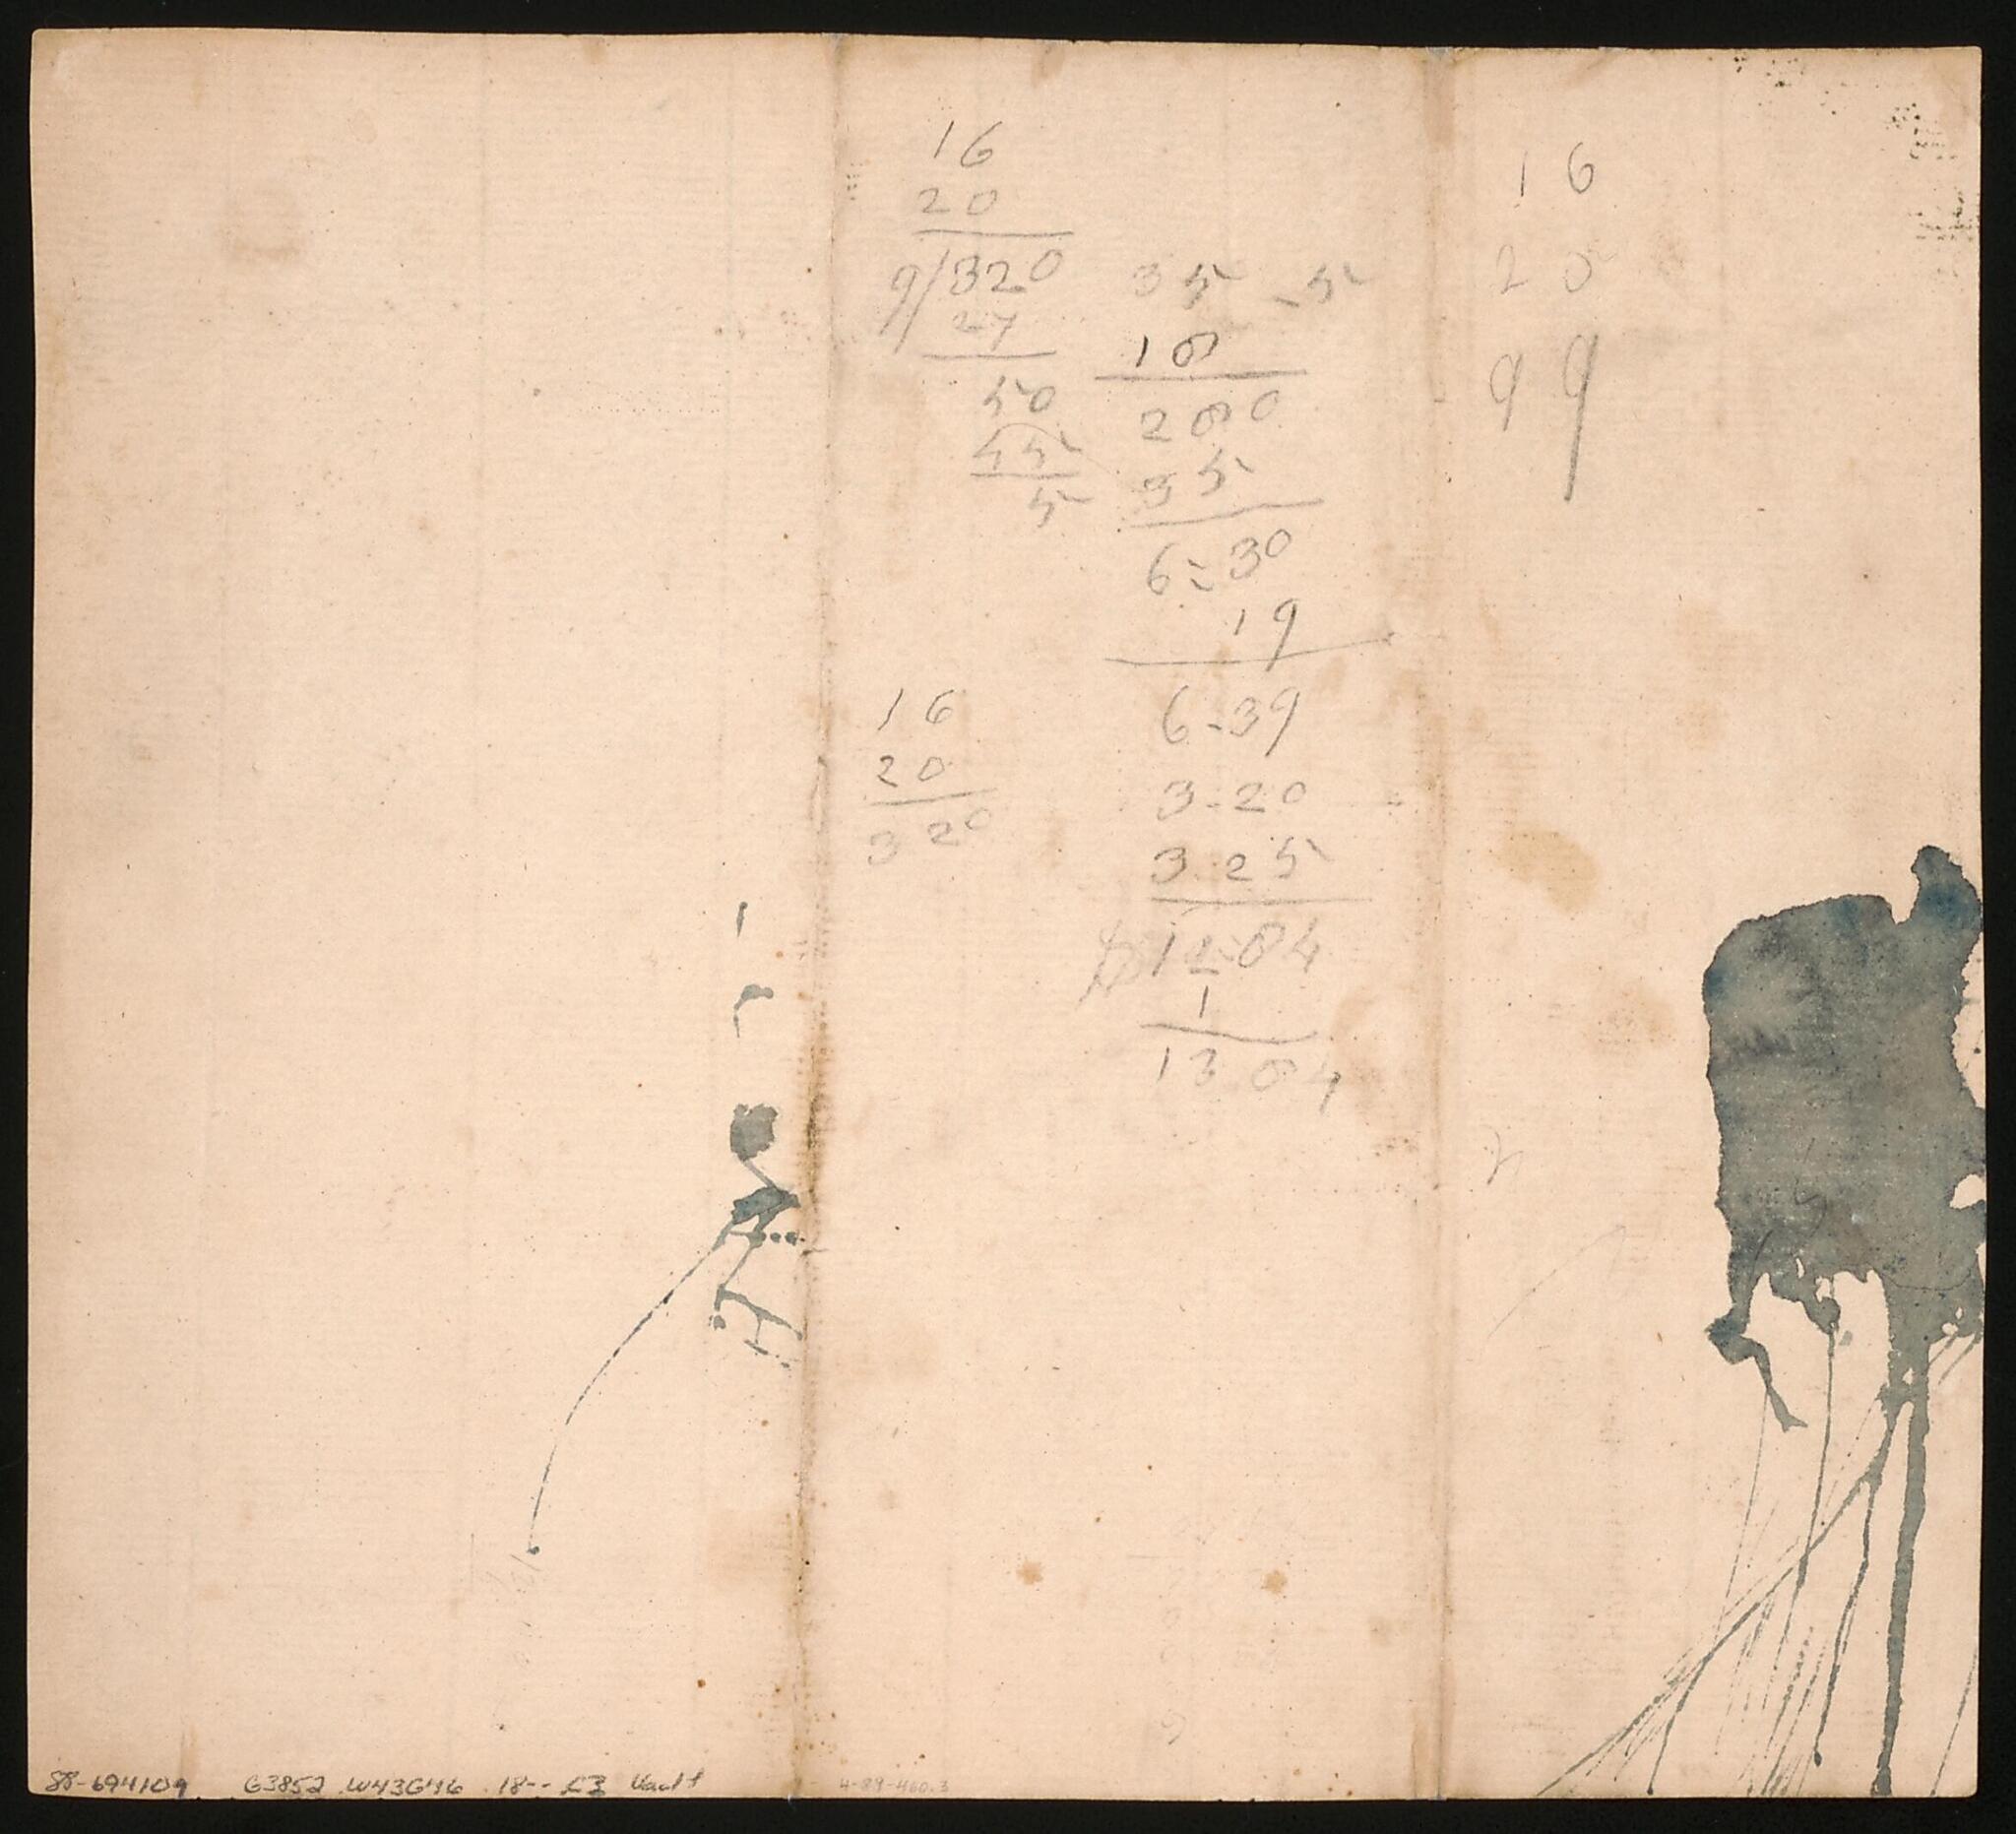 16
20
9/320
27
50
45
5
35 - 5
18
280
35
6 - 30
19
6 - 39
3 - 20
3 - 25
12 - 84
1
13 84
16
20
99
16
20
320
88-694109 G3852 .W43G46 18-- .L3 Vault 4-89-460.3